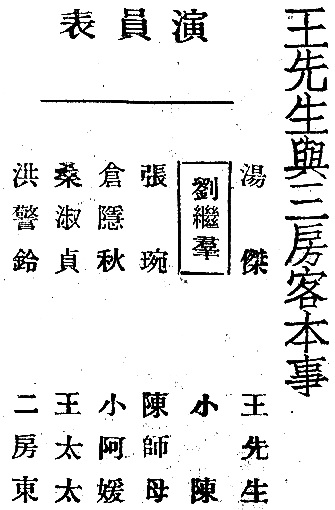 王先生與三房客本事
演員表
湯傑 王先生
劉繼羣 小陳
張琬 陳師母
倉隱秋 小阿媛
桑淑貞 王太太
洪警鈴 二房東